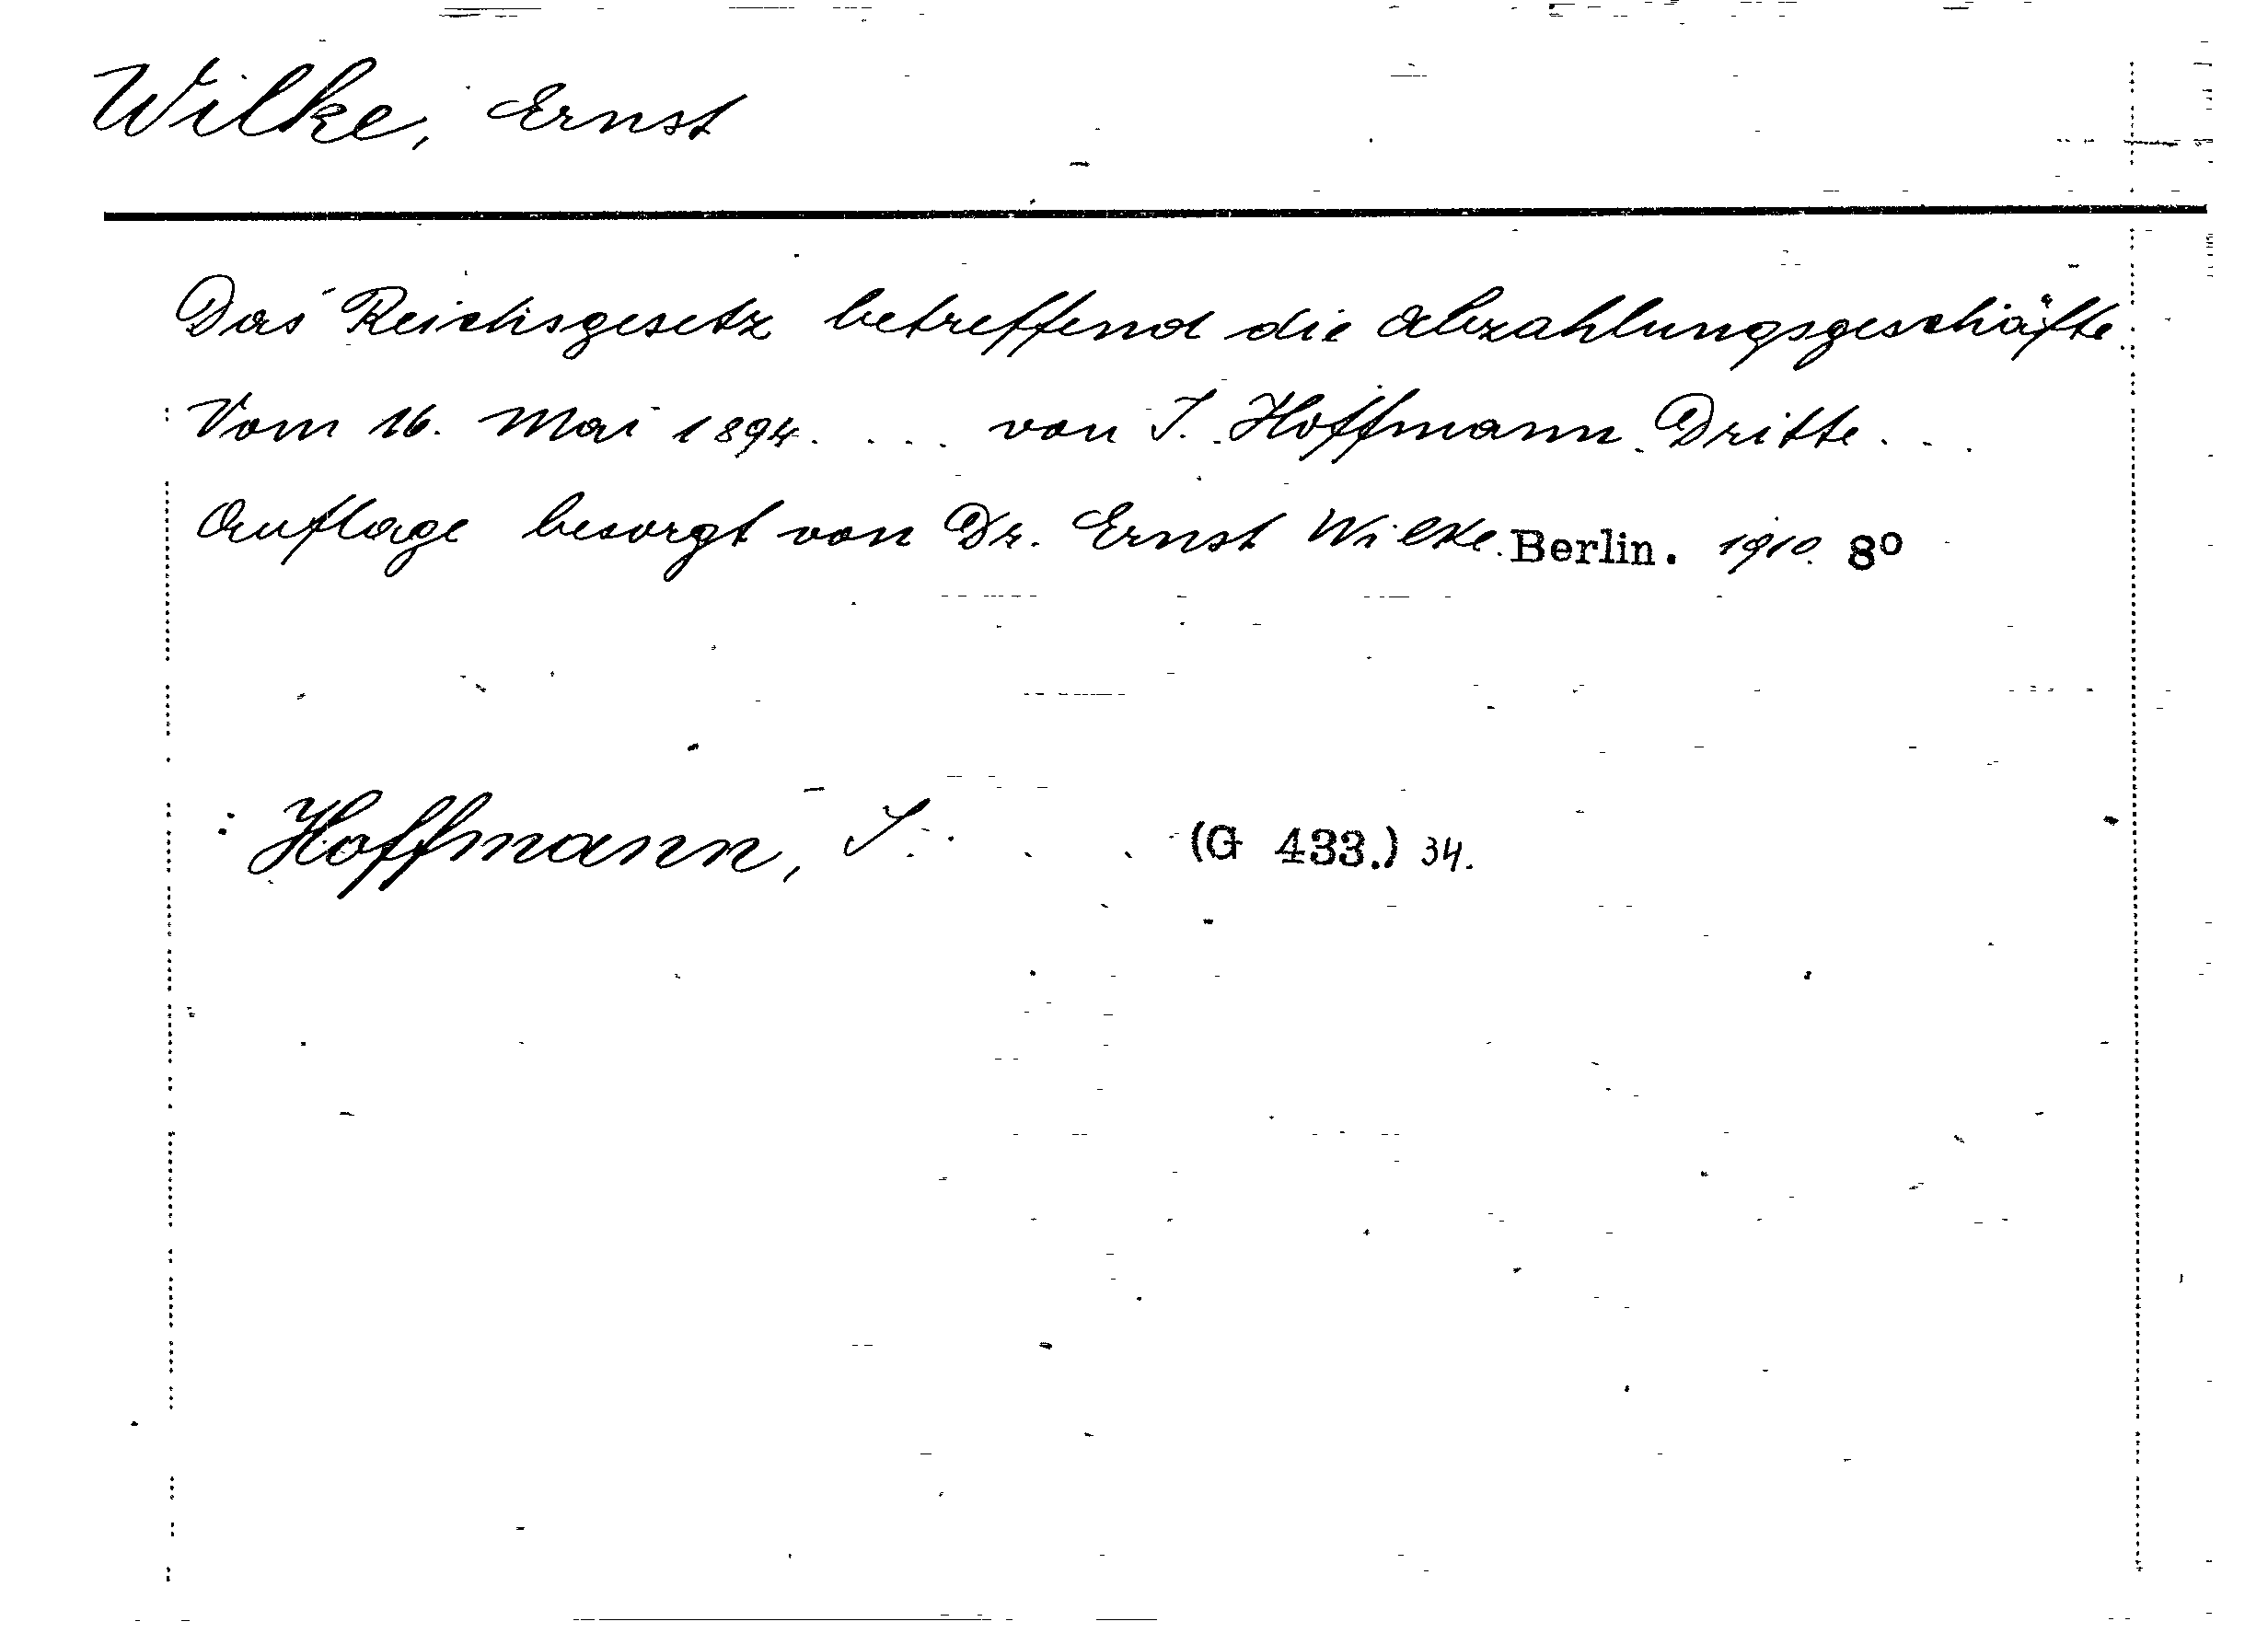 Wilke, Ernst
Das Reichsgesetz betreffend die Abzahlungsgeschäfte.
Vom 16. Mai 1894. ... von J. Hoffmann. Dritte...
Auflage besorgt von Dr. Ernst Wilke. Berlin. 1910. 8º
: Hoffmann, J. . . (G 433.) 34.